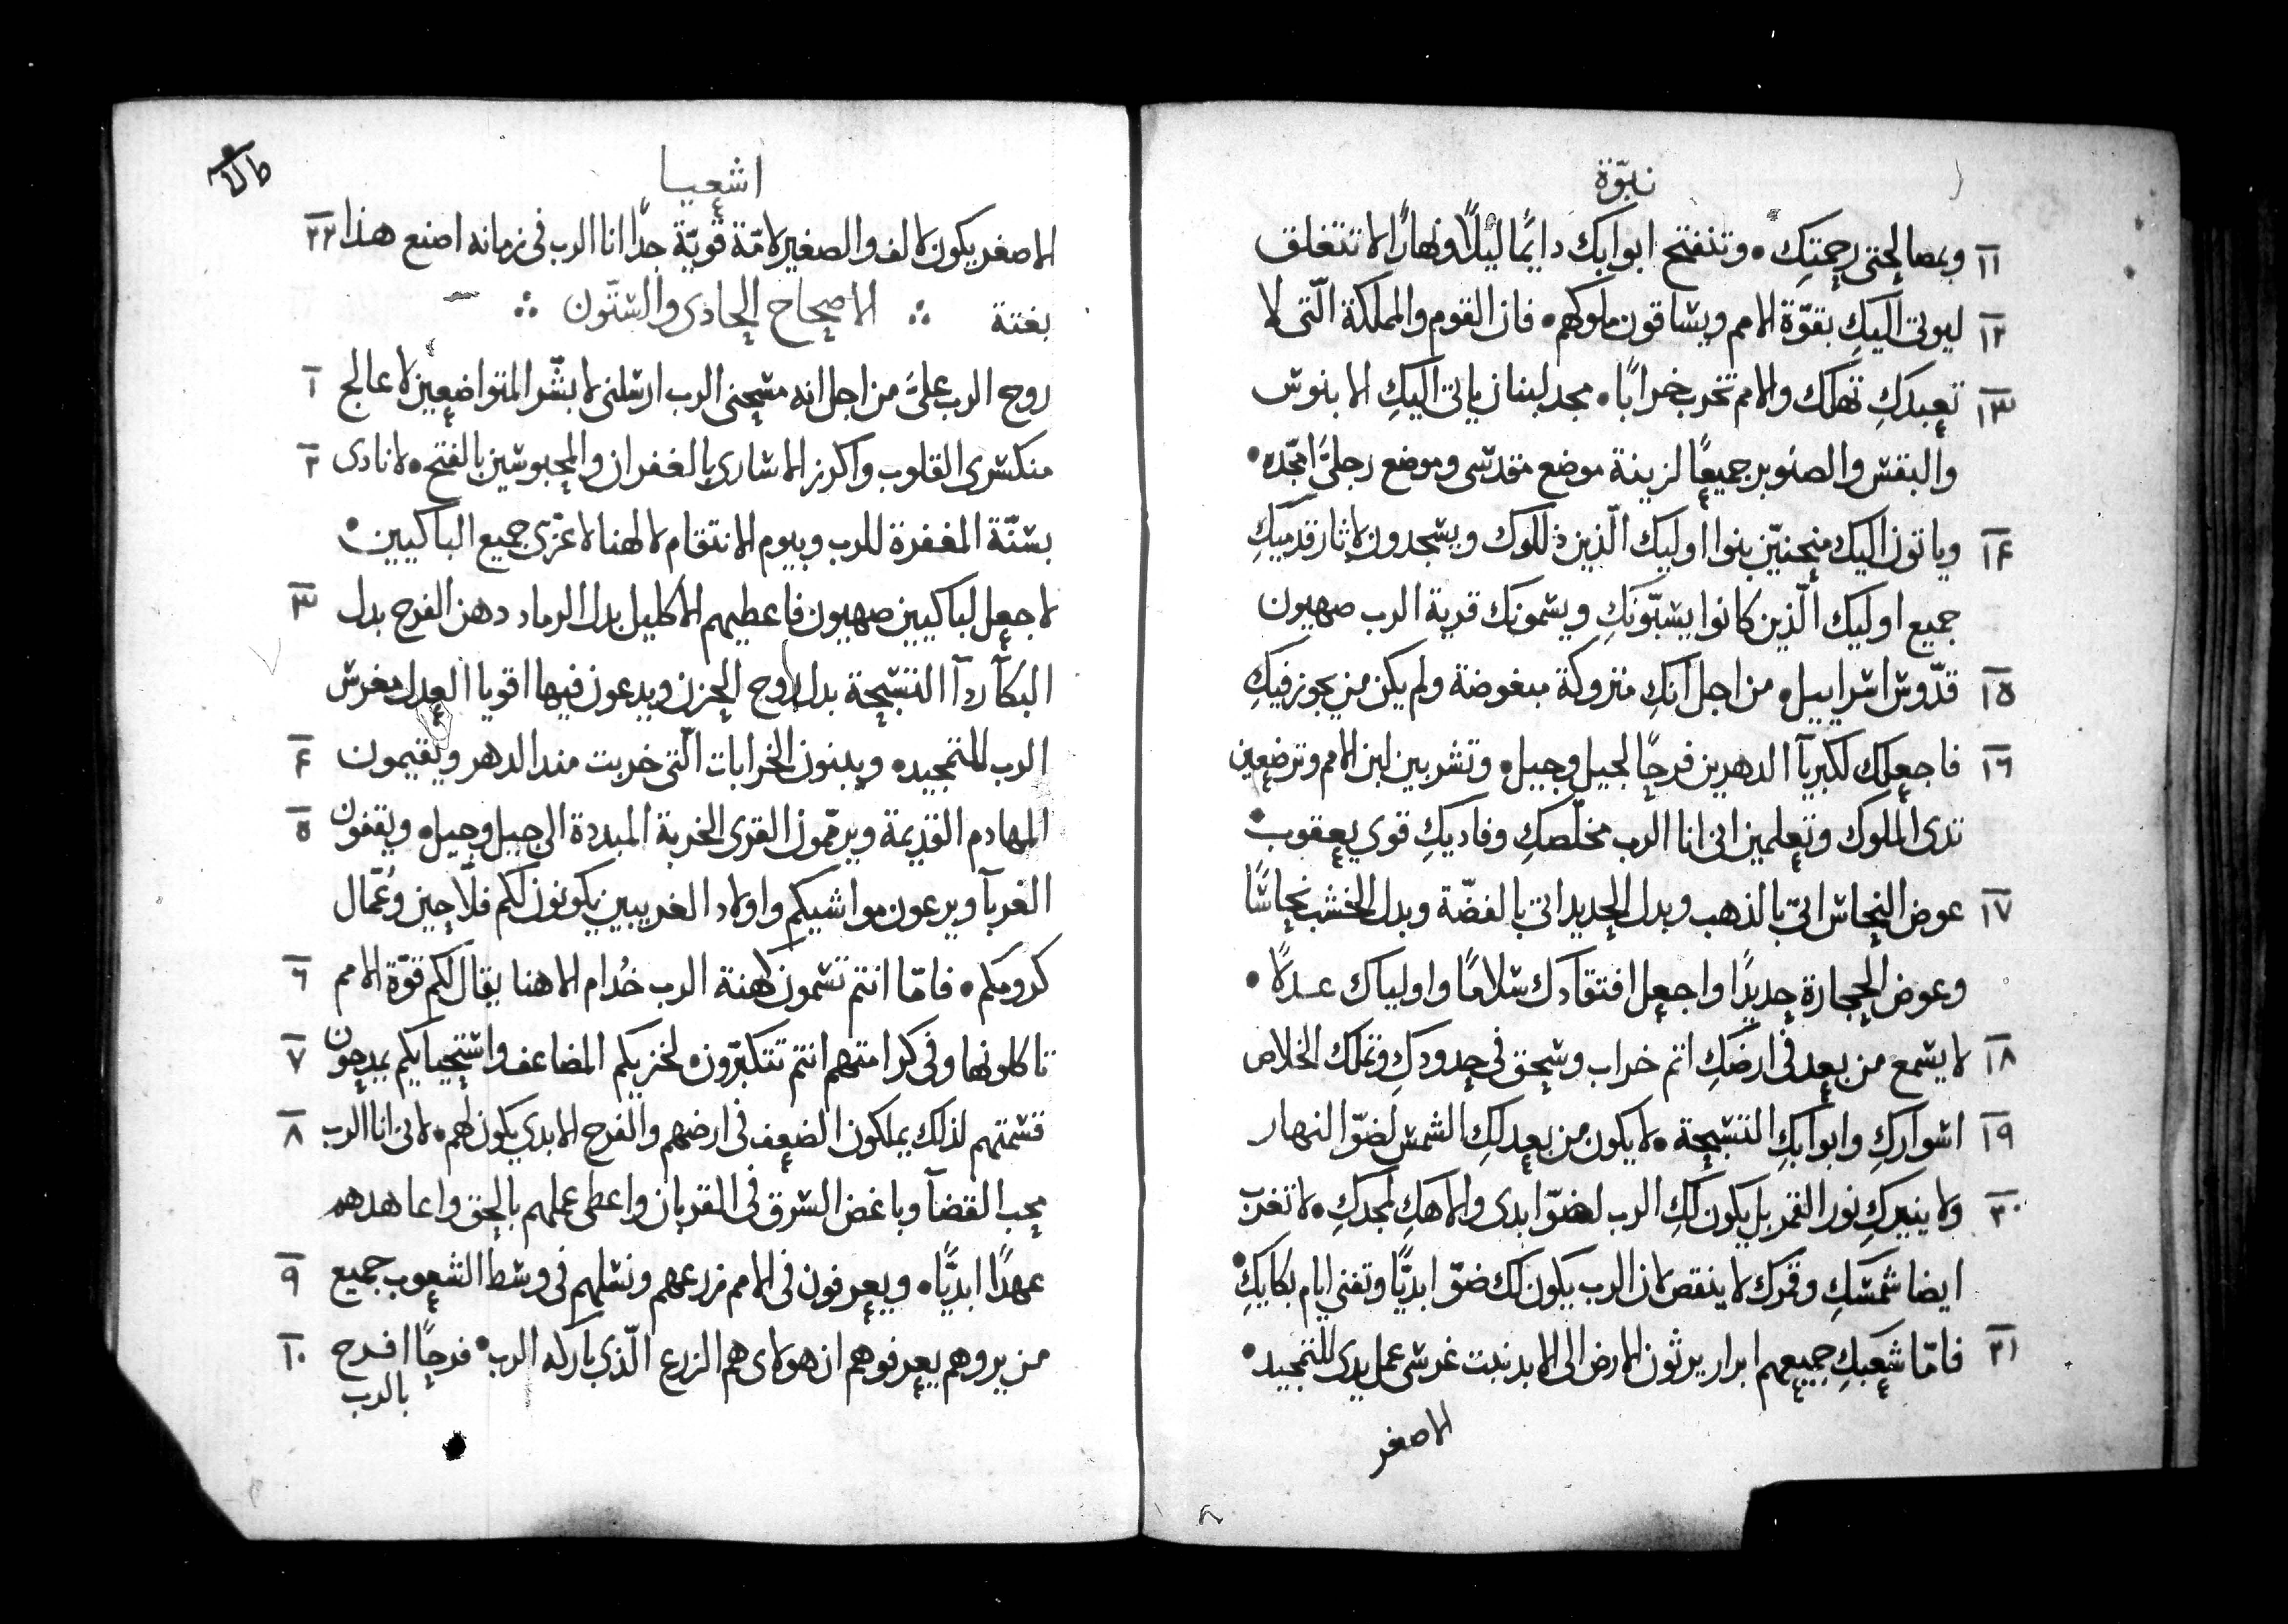 نبوّة
١١ وبمصالحتي رحمتكِ • وتنفتح ابوابك دايمًا ليلًا ونهارًا لا تتغلق
١٢ ليوتى اليكِ بقوّة الامم ويساقون ملوكهم • فان القوم والمملكة الّتى لا
١٣ تعبدكِ تهلك والامم تخرب خرابًا • مجد لبنان ياتى اليكِ الابنوس
والبقس والصنوبر جميعًا لزينة موضع مقدسى وموضع رجليّ امجّده •
١٤ وياتون اليك منحنيّين بنوا اوليك الّذين ذللوك ويسجدون لاثار قدميكِ
جميع اوليك الّذين كانوا يسبّونكِ ويسمونك قرية الرب صهيون
١٥ قدّوس اسراييل • من اجل انكِ متروكة مبغوضة ولم يكن من يجوز فيكِ
١٦ فاجعلك لكبريآ الدهرين فرحًا لجيل وجيل • وتشربين لبن الامم وترضعين
ثدى الملوك وتعلمين انى انا الرب مخلّصكِ وفاديكِ قوي يعقوب •
١٧ عوض النحاس اتىّ بالذهب وبدل الحديد اتي بالفضّة وبدل الخشب نحاسًا
وعوض الحجارة حديدًا واجعل افتقادك سلامًا واولياك عدلًا •
١٨ لا يسمع من بعد فى ارضكِ اثم خراب وسحق في حدودكِ وتملك الخلاص
١٩ اسواركِ وابوابكِ التسبحة • لا يكون من بعد لكِ الشمس لضوّ النهار
٢٠ ولا ينيركِ نور القمر بل يكون لكِ الرب لضوّ ابدى والاهكِ لمجدكِ • لا تغرب
ايضا شمسكِ وقمرك لا ينقص لان الرب يكون لك ضوّ ابديًّا وتفنى ايام بكايكِ •
٢١ فامّا شعبكِ جميعهم ابرار يرثون الارض الى الابد نبت غرسى عمل يدى للتمجيد •
الاصغر
اشعيا
الاصغر يكون لالف والصغير لامّة قويّة جدًا انا الرب فى زمانه اصنع هذا ٢٢
بغتة ∴ الاصحاح الحادى والستّون ∴
روح الرب علىّ من اجل انه مسحنى الرب ارسلنى لابشّر المتواضعين لاعالج ١
منكسرى القلوب واكرز الاسارى بالغفران والمحبوسين بالفتح • لانادى ٢
بسنّة المغفرة للرب وبيوم الانتقام لالهنا لاعزّى جميع الباكيين •
لاجعل لباكيين صهيون فاعطيهم الاكليل بدل الرماد دهن الفرح بدل ٣
البكآ ردآ التسبحة بدل روح الحزن ويدعون فيها اقويا العدل مغرس
الرب للتمجيد • ويبنون الخرابات الّتى خربت منذ الدهر ويقيمون ٤
المهادم القديمة ويرمّمون القرى الخربة المبددة الى جيل وجيل • ويقفون ٥
الغربآ ويرعون مواشيكم واولاد الغريبين يكونون لكم فلّاحين وعُمّال
كرومكم • فامّا انتم تسمون كهنة الرب خُدام الاهنا يقال لكم قوّة الامم ٦
تاكلونها وفى كرامتهم انتم تتكبّرون • لخزيكم المضاعف واستحيايكم يمدحون ٧
قسمتهم لذلك يملكون الضعف فى ارضهم والفرح الابدي يكون لهم • لانى انا الرب ٨
محب القضآ وباغض السرق فى القربان واعطى عملهم بالحق واعاهدهم
عهدًا ابديًّا • ويعرفون فى الامم زرعهم ونسلهم فى وسط الشعوب جميع ٩
من يروهم يعرفوهم ان هولاى هم الزرع الّذي باركه الرب • فرحًا افرح ١٠
بالرب